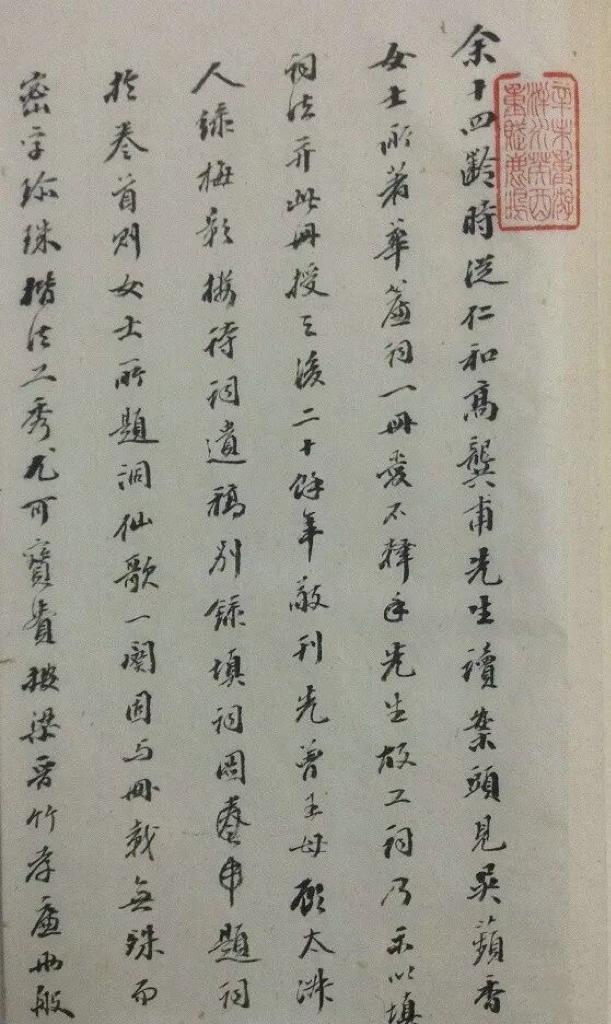 余十四齡時從仁和高龔甫先生讀案頭見吳蘋香
女士所著華簾詞一冊愛不釋手先生故工詞乃示以填
詞法弄此冊授之後二十餘年敬刊先曾王母顧太淑
人綠梅影樓詩詞遺稿別錄填詞圖卷中題詞
於卷首則女士所題洞仙歌一闋固与冊載無殊而
密字珍珠楷法工秀尤可寶貴按梁晋竹孝廉兩般